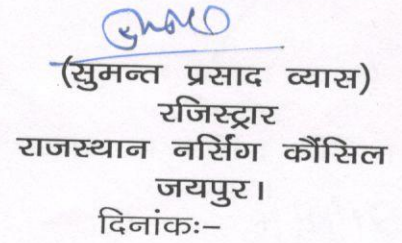 (सुमन्त प्रसाद व्यास)
रजिस्ट्रार
राजस्थान नर्सिंग कौंसिल
जयपुर।
दिनांकः–